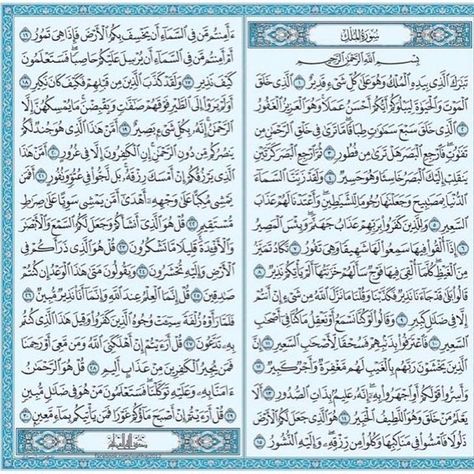 سُورَةُ المُلْكِ
بِسْمِ اللَّهِ الرَّحْمَٰنِ الرَّحِيمِ
تَبَٰرَكَ ٱلَّذِى بِيَدِهِ ٱلْمُلْكُ وَهُوَ عَلَىٰ كُلِّ شَىْءٍ قَدِيرٌ ١ ٱلَّذِى خَلَقَ
ٱلْمَوْتَ وَٱلْحَيَوٰةَ لِيَبْلُوَكُمْ أَيُّكُمْ أَحْسَنُ عَمَلًا وَهُوَ ٱلْعَزِيزُ ٱلْغَفُورُ
٢ ٱلَّذِى خَلَقَ سَبْعَ سَمَٰوَٰتٍ طِبَاقًا مَّا تَرَىٰ فِى خَلْقِ ٱلرَّحْمَٰنِ مِن
تَفَٰوُتٍ فَٱرْجِعِ ٱلْبَصَرَ هَلْ تَرَىٰ مِن فُطُورٍ ٣ ثُمَّ ٱرْجِعِ ٱلْبَصَرَ كَرَّتَيْنِ
يَنقَلِبْ إِلَيْكَ ٱلْبَصَرُ خَاسِئًا وَهُوَ حَسِيرٌ ٤ وَلَقَدْ زَيَّنَّا ٱلسَّمَآءَ
ٱلدُّنْيَا بِمَصَٰبِيحَ وَجَعَلْنَٰهَا رُجُومًا لِّلشَّيَٰطِينِ وَأَعْتَدْنَا لَهُمْ عَذَابَ
ٱلسَّعِيرِ ٥ وَلِلَّذِينَ كَفَرُوا۟ بِرَبِّهِمْ عَذَابُ جَهَنَّمَ وَبِئْسَ ٱلْمَصِيرُ
٦ إِذَآ أُلْقُوا۟ فِيهَا سَمِعُوا۟ لَهَا شَهِيقًا وَهِىَ تَفُورُ ٧ تَكَادُ تَمَيَّزُ
مِنَ ٱلْغَيْظِ كُلَّمَآ أُلْقِىَ فِيهَا فَوْجٌ سَأَلَهُمْ خَزَنَتُهَآ أَلَمْ يَأْتِكُمْ نَذِيرٌ ٨
قَالُوا۟ بَلَىٰ قَدْ جَآءَنَا نَذِيرٌ فَكَذَّبْنَا وَقُلْنَا مَا نَزَّلَ ٱللَّهُ مِن شَىْءٍ إِنْ أَنتُمْ
إِلَّا فِى ضَلَٰلٍ كَبِيرٍ ٩ وَقَالُوا۟ لَوْ كُنَّا نَسْمَعُ أَوْ نَعْقِلُ مَا كُنَّا فِىٓ أَصْحَٰبِ
ٱلسَّعِيرِ ١٠ فَٱعْتَرَفُوا۟ بِذَنۢبِهِمْ فَسُحْقًا لِّأَصْحَٰبِ ٱلسَّعِيرِ ١١ إِنَّ
ٱلَّذِينَ يَخْشَوْنَ رَبَّهُم بِٱلْغَيْبِ لَهُم مَّغْفِرَةٌ وَأَجْرٌ كَبِيرٌ ١٢
وَأَسِرُّوا۟ قَوْلَكُمْ أَوِ ٱجْهَرُوا۟ بِهِۦٓ إِنَّهُۥ عَلِيمٌۢ بِذَاتِ ٱلصُّدُورِ ١٣ أَلَا
يَعْلَمُ مَنْ خَلَقَ وَهُوَ ٱللَّطِيفُ ٱلْخَبِيرُ ١٤ هُوَ ٱلَّذِى جَعَلَ لَكُمُ ٱلْأَرْضَ
ذَلُولًا فَٱمْشُوا۟ فِى مَنَاكِبِهَا وَكُلُوا۟ مِن رِّزْقِهِۦ وَإِلَيْهِ ٱلنُّشُورُ ١٥
ءَأَمِنتُم مَّن فِى ٱلسَّمَآءِ أَن يَخْسِفَ بِكُمُ ٱلْأَرْضَ فَإِذَا هِىَ تَمُورُ ١٦
أَمْ أَمِنتُم مَّن فِى ٱلسَّمَآءِ أَن يُرْسِلَ عَلَيْكُمْ حَاصِبًا فَسَتَعْلَمُونَ
كَيْفَ نَذِيرِ ١٧ وَلَقَدْ كَذَّبَ ٱلَّذِينَ مِن قَبْلِهِمْ فَكَيْفَ كَانَ نَكِيرِ ١٨
أَوَلَمْ يَرَوْا۟ إِلَى ٱلطَّيْرِ فَوْقَهُمْ صَٰٓفَّٰتٍ وَيَقْبِضْنَ مَا يُمْسِكُهُنَّ إِلَّا
ٱلرَّحْمَٰنُ إِنَّهُۥ بِكُلِّ شَىْءٍۭ بَصِيرٌ ١٩ أَمَّنْ هَٰذَا ٱلَّذِى هُوَ جُندٌ لَّكُمْ
يَنصُرُكُم مِّن دُونِ ٱلرَّحْمَٰنِ إِنِ ٱلْكَٰفِرُونَ إِلَّا فِى غُرُورٍ ٢٠ أَمَّنْ هَٰذَا
ٱلَّذِى يَرْزُقُكُمْ إِنْ أَمْسَكَ رِزْقَهُۥ بَل لَّجُّوا۟ فِى عُتُوٍّ وَنُفُورٍ ٢١ أَفَمَن
يَمْشِى مُكِبًّا عَلَىٰ وَجْهِهِۦٓ أَهْدَىٰٓ أَمَّن يَمْشِى سَوِيًّا عَلَىٰ صِرَٰطٍ
مُّسْتَقِيمٍ ٢٢ قُلْ هُوَ ٱلَّذِىٓ أَنشَأَكُمْ وَجَعَلَ لَكُمُ ٱلسَّمْعَ وَٱلْأَبْصَٰرَ
وَٱلْأَفْـِٔدَةَ قَلِيلًا مَّا تَشْكُرُونَ ٢٣ قُلْ هُوَ ٱلَّذِى ذَرَأَكُمْ فِى
ٱلْأَرْضِ وَإِلَيْهِ تُحْشَرُونَ ٢٤ وَيَقُولُونَ مَتَىٰ هَٰذَا ٱلْوَعْدُ إِن كُنتُمْ
صَٰدِقِينَ ٢٥ قُلْ إِنَّمَا ٱلْعِلْمُ عِندَ ٱللَّهِ وَإِنَّمَآ أَنَا۠ نَذِيرٌ مُّبِينٌ ٢٦
فَلَمَّا رَأَوْهُ زُلْفَةً سِيٓـَٔتْ وُجُوهُ ٱلَّذِينَ كَفَرُوا۟ وَقِيلَ هَٰذَا ٱلَّذِى كُنتُم
بِهِۦ تَدَّعُونَ ٢٧ قُلْ أَرَءَيْتُمْ إِنْ أَهْلَكَنِىَ ٱللَّهُ وَمَن مَّعِىَ أَوْ رَحِمَنَا
فَمَن يُجِيرُ ٱلْكَٰفِرِينَ مِنْ عَذَابٍ أَلِيمٍ ٢٨ قُلْ هُوَ ٱلرَّحْمَٰنُ
ءَامَنَّا بِهِۦ وَعَلَيْهِ تَوَكَّلْنَا فَسَتَعْلَمُونَ مَنْ هُوَ فِى ضَلَٰلٍ مُّبِينٍ
٢٩ قُلْ أَرَءَيْتُمْ إِنْ أَصْبَحَ مَآؤُكُمْ غَوْرًا فَمَن يَأْتِيكُم بِمَآءٍ مَّعِينٍۭ ٣٠